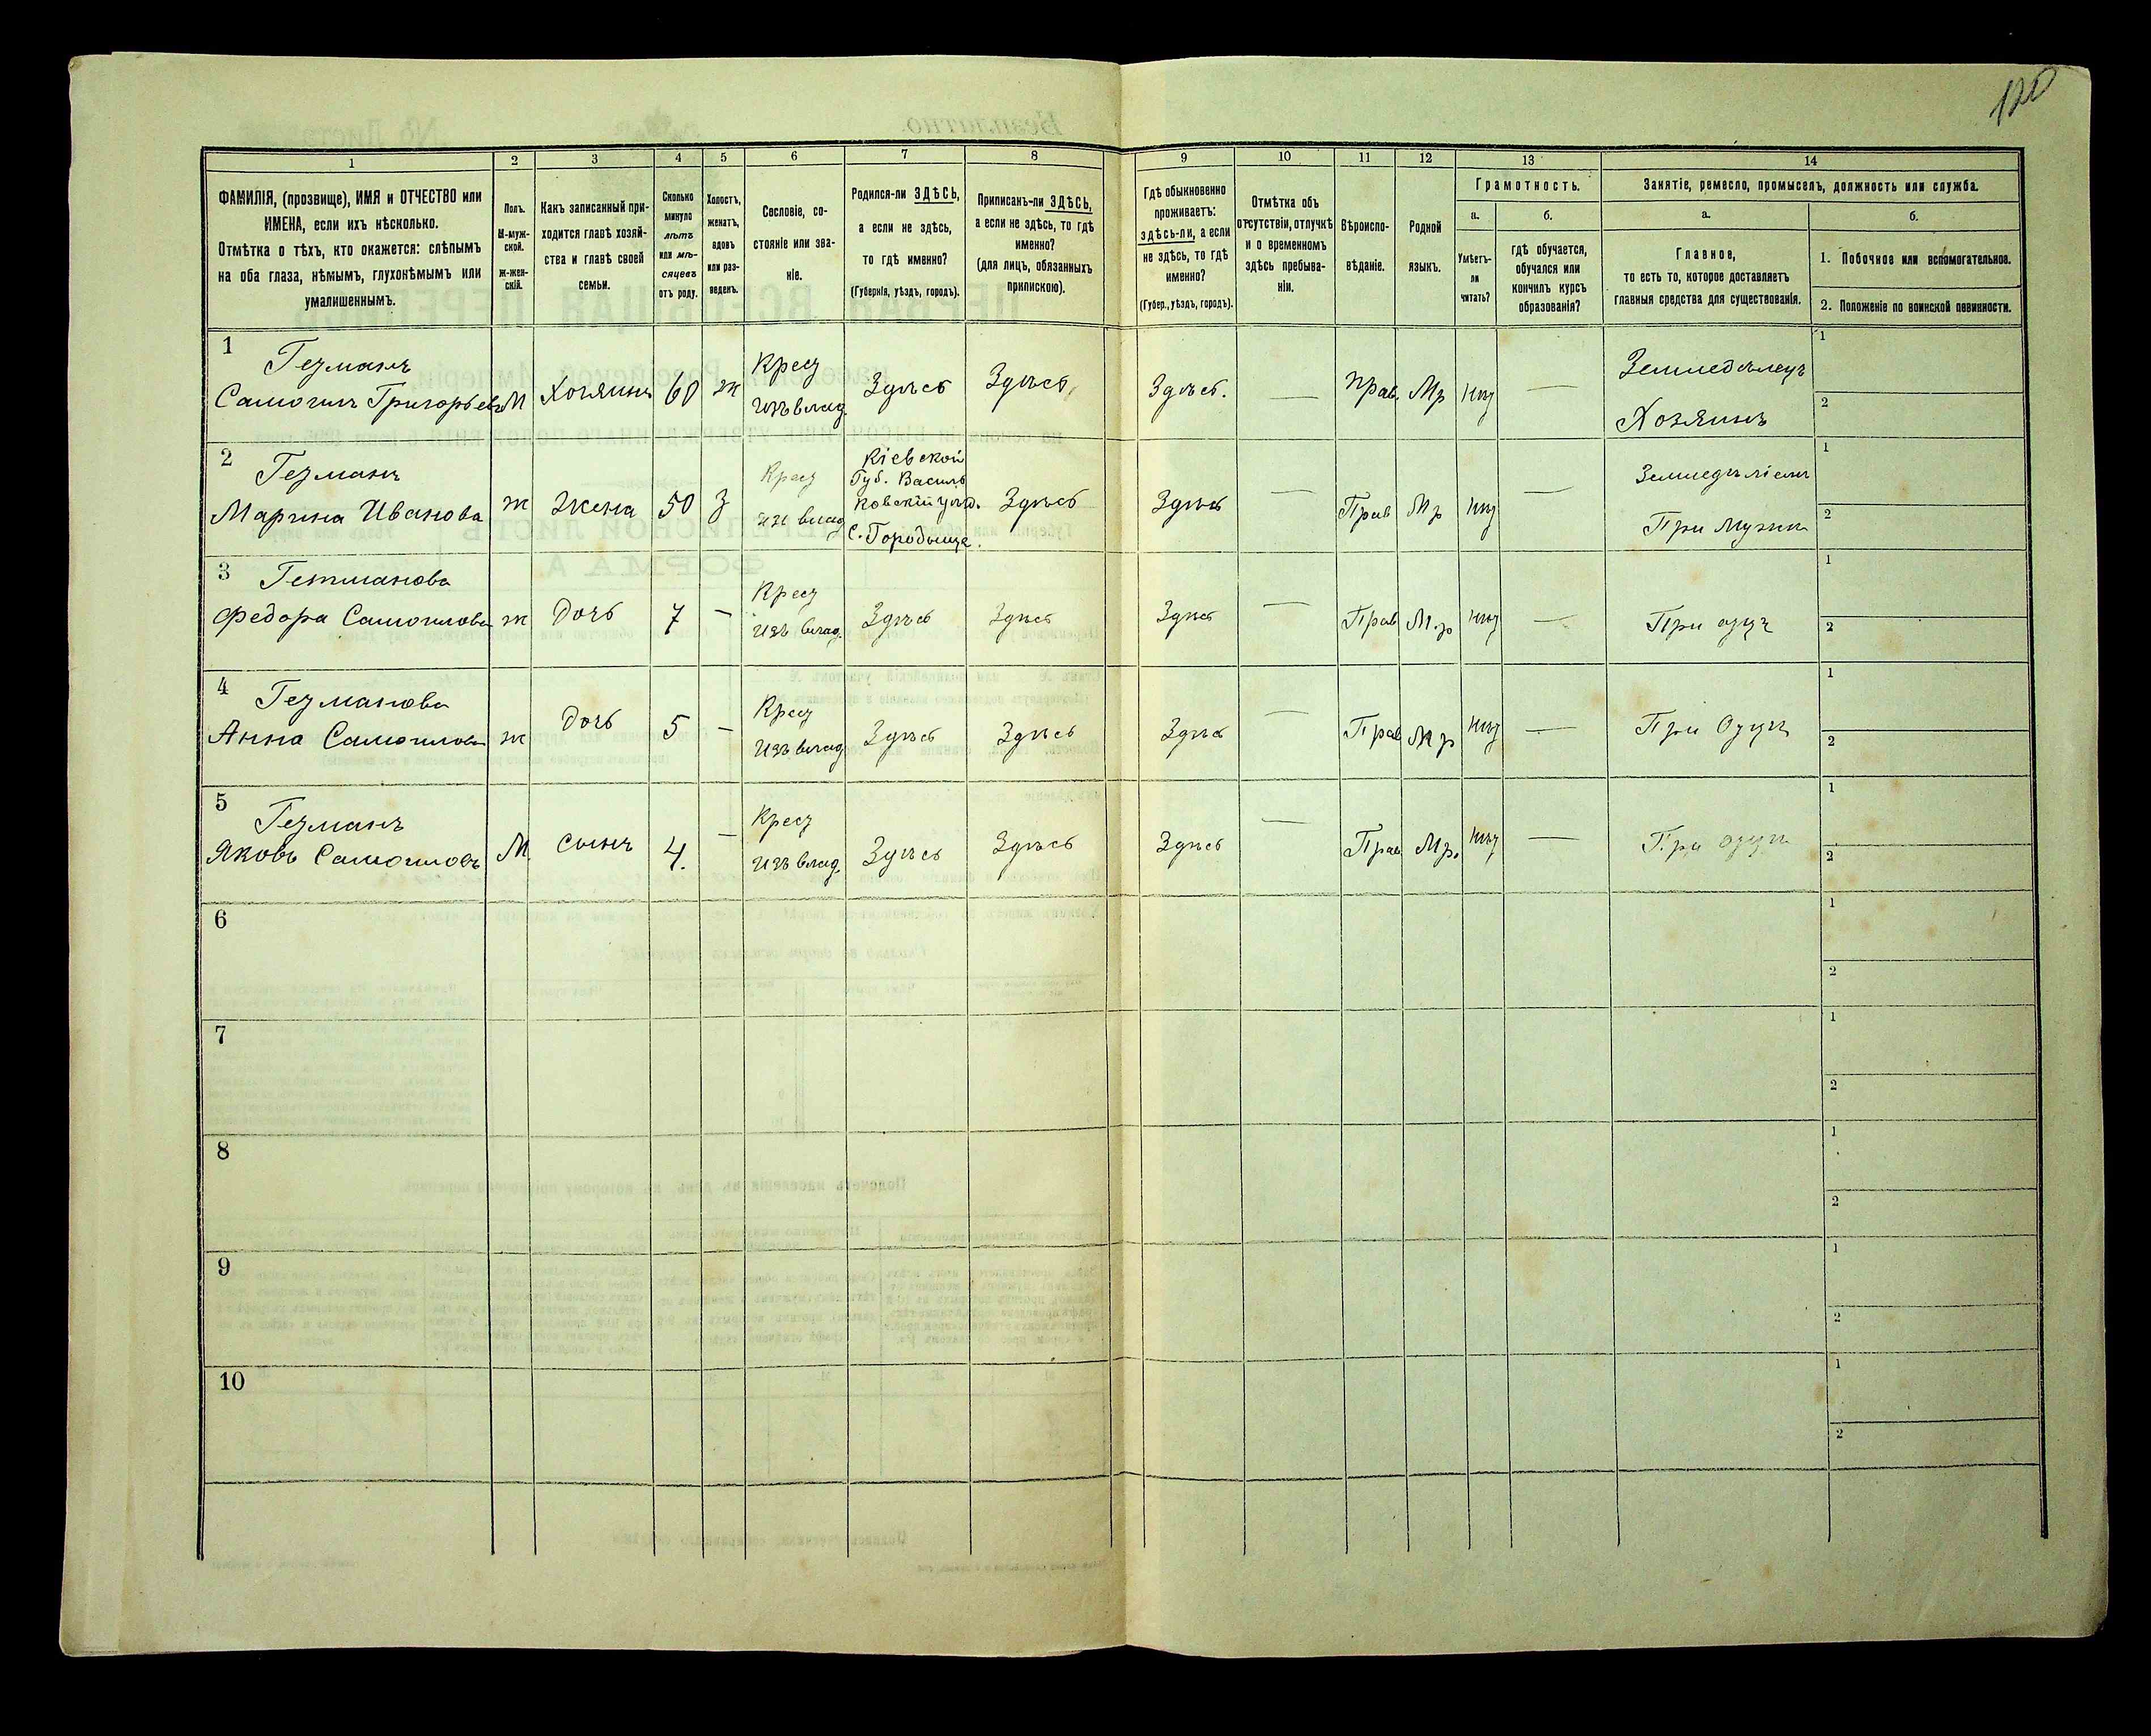 120
1
2
3
4
5
6
7
8
9
10
11
12
13
14
ФАМИЛІЯ, (прозвище), ИМЯ и ОТЧЕСТВО или
ИМЕНА, если ихъ нѣсколько.
Отмѣтка о тѣхъ, кто окажется: слѣпымъ
на оба глаза, нѣмымъ, глухонѣмымъ или
умалишеннымъ.
Полъ.
М-муж-
ской.
Ж-жен-
скій.
Какъ записанный при-
ходится главѣ хозяй-
ства и главѣ своей
семьи.
Сколько
минуло
лѣтъ
или мѣ-
сяцевъ
отъ роду.
Холостъ,
женатъ,
вдовъ
или раз-
веденъ.
Сословіе, со-
стояніе или зва-
ніе.
Родился-ли ЗДѢСЬ,
а если не здѣсь,
то гдѣ именно?
(Губернія, уѣздъ, городъ).
Приписанъ-ли ЗДѢСЬ,
а если не здѣсь, то гдѣ
именно?
(для лицъ, обязанныхъ
припискою).
Гдѣ обыкновенно
проживаетъ:
здѣсь-ли, а если
не здѣсь, то гдѣ
именно?
(Губер., уѣздъ, городъ).
Отмѣтка объ
отсутствіи, отлучкѣ
и о временномъ
здѣсь пребыва-
ніи.
Вѣроиспо-
вѣданіе.
Родной
языкъ.
Грамотность.
а.
Умѣетъ-
ли
читать?
б.
гдѣ обучается,
обучался или
кончилъ курсъ
образованія?
Занятіе, ремесло, промыселъ, должность или служба.
а.
Главное,
то есть то, которое доставляетъ
главныя средства для существованія.
б.
1. Побочное или вспомогательное.
2. Положеніе по воинской повинности.
1
Гетманъ
Самоилъ Григорьевъ
М
Хозяинъ
60
ж
Крест
изъ влад.
Здѣсь
Здѣсь
Здѣсь.
—
Прав.
Мр
нѣт
—
Земледѣлецъ
Хозяинъ
1
2
2
Гетманъ
Марина Иванова
ж
Жена
50
З
Крест
изъ влад
Кіевской
Губ. Василь
ковскій уѣзд.
с. Городыще.
Здѣсь
Здѣсь
—
Прав
Мр
нѣт
—
При мужи
1
2
3
Гетманова
Федора Самоилова
ж
Дочь
7
—
Крест
изъ влад.
Здѣсь
Здѣсь
Здѣсь
—
Прав
М.р
нѣт
—
При отцѣ
1
2
4
Гетманова
Анна Самоилова
ж
Дочь
5
—
Крест
изъ влад
Здѣсь
Здѣсь
Здѣсь
—
Прав
Мр
нѣт
—
При Отцѣ
1
2
5
Гетманъ
Яковъ Самоиловъ
М.
сынъ
4.
—
Крест
изъ влад.
Здѣсь
Здѣсь
Здѣсь
—
Прав
Мр.
нѣт
—
При отцѣ
1
2
6
1
2
7
1
2
8
1
2
9
1
2
10
1
2